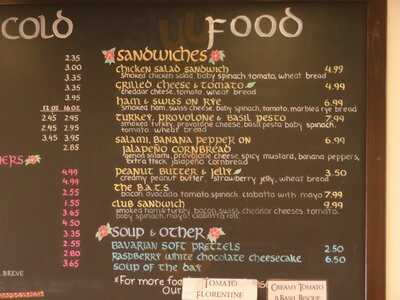 COLD
FOOD
2.35
3.00
3.35
3.95
12 oz 16 oz
2.45 2.95
2.45 2.95
3.45 3.95
2.65
4.99
4.99
2.55
1.55
3.65
3.35
2.55
2.80
3.65
BREVE
SANDWICHES
CHICKEN SALAD SANDWICH 4.99
smoked chicken salad, baby spinach, tomato, wheat bread
GRILLED CHEESE & TOMATO 4.99
cheddar cheese, tomato, wheat bread
HAM & SWISS ON RYE 6.99
smoked ham, swiss cheese, baby spinach, tomato, marbled rye bread
TURKEY, PROVOLONE & BASIL PESTO 7.99
smoked turkey, provolone cheese, basil pesto, baby spinach,
tomato, wheat bread
SALAMI, BANANA PEPPER ON 6.99
JALAPEÑO CORNBREAD
genoa salami, provolone cheese, spicy mustard, banana peppers,
extra thick jalapeño cornbread
PEANUT BUTTER & JELLY 3.50
creamy peanut butter, strawberry jelly, wheat bread
THE B.A.T.S.
bacon, avocado, tomato, spinach, ciabatta with mayo 7.99
CLUB SANDWICH 9.99
smoked ham & turkey, bacon, swiss, cheddar cheeses, tomato,
baby spinach, mayo, ciabatta roll
SOUP & OTHER
BAVARIAN SOFT PRETZELS 2.50
RASPBERRY WHITE CHOCOLATE CHEESECAKE 6.50
SOUP OF THE DAY
*For more foo
Our
TOMATO
FLORENTINE
CREAMY TOMATO
& BASIL BISQUE